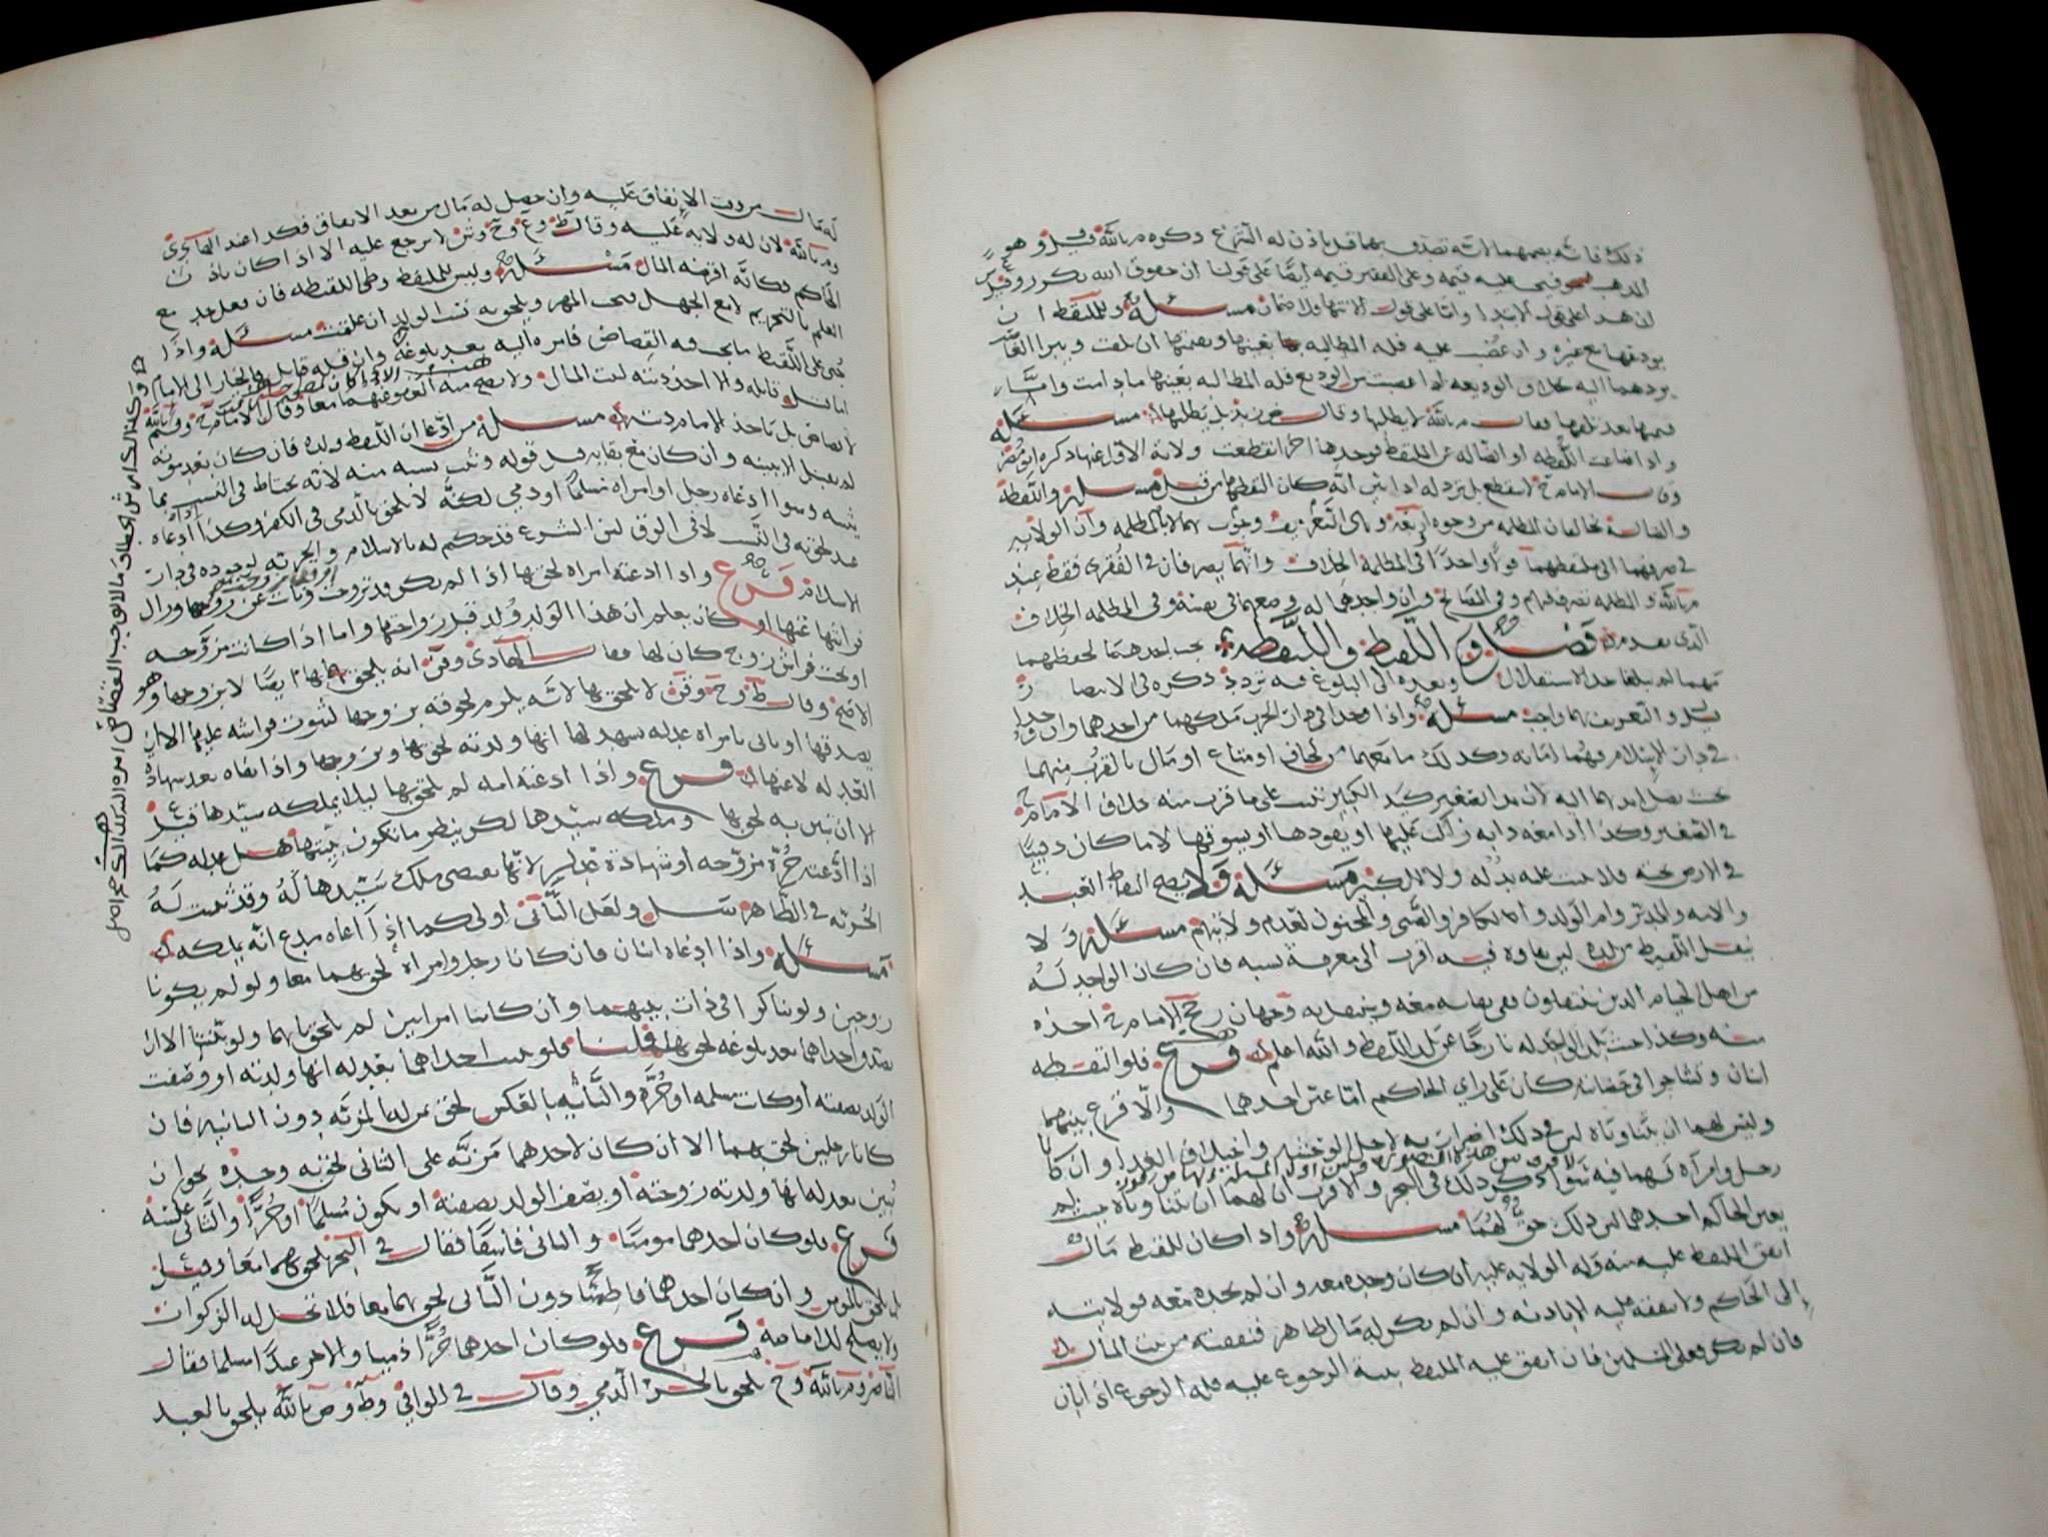 ذلك فانه يضمنها لانه تصدق بها قبل ياذن له الشرع ذكره م بالله قيل وهو
المذهب فيجب عليه قيمه وعلى الفقير قيمه ايضا على قولنا ان حقوق الله تكرر وقيل
ان هذا على قول الابتدا واما على قول الانتها فلا ضمان مسئلة وللملتقط ان
يودعها مع غيره وان غصب عليه فله المطالبه بها بعينها وبقيمتها ان تلفت ويبرا الغاصب
بردهما اليه بخلاف الوديعه اذا غصبت من الوديع فله المطالبه بعينها مادامت واما
قيمتها بعد تلفها فقال م بالله لا يطلبها وقال يطلبها مسئلة
واذا ضاعت اللقطه او الضاله عن الملتقط فوجدها اخر انقطعت ولاية الاول عنها ذكره ابو مضر
وقال الامام ح لا ينقطع بل يرد له اذا بين انه كان التقطها من قبل مسئلة واللقطة
والضالة تخالفان المظلمه من وجوه اربعة وهي التعريف وجوب بهما لا بالمظلمه وان الولايه
في صرفهما الى ملتقطهما قولا واحدا وفي المظلمة الخلاف وانهما يصرفان في الفقرى فقط عند
م بالله والمظلمه تصرف فيهم وفي المصالح وان واجدهما له وضعهما في نفسه وفي المظلمه الخلاف
الذى تقدم فصل و اللقيط واللقيطه يجب لحدهما لحفظهما
مهما لم يبلغا حد الاستقلال وبعده الى البلوغ فيه تردد ذكره في الانتصار
قيل والتعريف بهما واجب مسئلة واذا وجدا في دار الحرب ملكهما من اخذهما وان وجدا
في دار الاسلام فهما امانه وكذلك ما معهما من لحاف او متاع او مال بالقرب منهما
بحيث تصل ايديهما اليه لان يد الصغير كيد الكبير تثبت على ما قرب منه خلاف الامام ح
في الصغير وكذا اذا معه دابه راكب عليها او يقودها او يسوقها لا ما كان دفينا
في الارض تحته فلا يثبت عليه يده ولا الكبير مسئلة ولا يصح التقاط العبد
والامه والمدبر وام الولد ولا الكافر والصبى والمجنون لعدم ولايتهم مسئلة ولا
ينقل اللقيط من بلده لان بقاوه فيه اقرب الى معرفة نسبه فان كان الواجد له
من اهل الخيام الذين ينتقلون ففي بقائه معه وجهان رجح الامام ح اخذه
منه وكذا حيث بلد الواجد له نازحا عن بلد اللقيط والله اعلم فرع فلو التقطه
اثنان وتشاجرا في حضانته كان على راي الحاكم اما عين احدهما والا قرع بينهما
وليس لهما ان يتناوباه لان في ذلك اضرار به لاجل الوحشه واختلاف الغذا وان كانا
رجل وامراة فهما فيه سواء ذكر ذلك في البحر والاقرب ان لهما ان يتناوباه حيث لم
يعين الحاكم احدهما لان ذلك حق لهما مسئلة واذا كان للقيط مال
انفق الملتقط عليه منه وله الولايه عليه ان كان وجده معه وان لم يجده معه فولايته
الى الحاكم ولا ينفقه عليه الا باذنه وان لم يكن له مال ظاهر فنفقته من بيت المال
فان لم يكن فعلى المسلمين فان انفق عليه الملتقط بنية الرجوع عليه فله الرجوع اذا بان
له مال من وقت الانفاق عليه وان حصل له مال من بعد الانفاق فكذا عند الهادى
و م بالله لان له ولاية عليه وقال ط و ع و ح و ش لا يرجع عليه الا اذا كان باذن
الحاكم فكانه اقرضه المال مسئلة وليس للملتقط وطى اللقيطه فان فعل حد مع
العلم بالتحريم لا مع الجهل فيجب المهر ويلحق به نسب الولد ان علقت مسئلة واذا
جنى على اللقيط ما يجب فيه القصاص فامره اليه بعد بلوغه وان قتله قاتل فالخيار الى الامام
اما قتل قاتله والا اخذ ديته لبيت المال ولا يصح منه العفو عنهما معا وقال الامام ح و م بالله
لا قصاص بل ياخذ الامام ديته مسئلة من ادعا ان اللقيط ولده فان كان بعد موته
لم يقبل الا ببينه وان كان مع بقايه قبل قوله وثبت نسبه منه لانه يحتاط في النسب بما
يثبته وسوا ادعاه رجل او امراه مسلما او ذمي لكنه لا يلحق بالذمى في الكفر وكذا اذا ادعاه
عبد لحق به في النسب لا في الرق لان الشرع قد حكم له بالاسلام والحرية لوجوده في دار
الاسلام فرع واذا ادعته امراه لحق بها اذا لم يكن قد تزوجت
او كان يعلم ان هذا الولد ولد قبل زواجتها واما اذا كانت مزوجه
او تحت فراش زوج كان لها فقال الهادى و ن انه يلحق بها ايضا لا بزوجها وهو
الاصح وقال ط و ح و ن لا يلحق بها لانه يلزم لحوقه بزوجها لثبوت فراشه عليها الا ان
يصدقها او ياتى بامراه عدله تشهد لها انها ولدته لحق بها وبزوجها واذا نفاه بعد شهادة
العدله لاعنها فرع واذا ادعته امه لم يلحق بها ليلا يملكه سيدها قيل
الا ان تبين به لحق بها وملكه سيدها لكن ينظر ما تكون بينتها هل عدله كما
اذا ادعته حرة مزوجه او شهادة عدلين لانها تقتضى ملك سيدها له وقد ثبت له
الحريه في الظاهر سل ولعل الثانى اولى كما اذا ادعاه مدع انه يملكه
مسئلة واذا ادعاه اثنان فان كانا رجل وامراه لحق بهما معا ولو لم يكونا
زوجين ولو تناكرا في ذات بينهما وان كانتا امراتين لم يلحق بهما ولو بينتا الا ان
يصدق احداهما بعد بلوغه لحق بها قلنا فلو بينت احداهما بعدله انها ولدته او وصفت
الولد بصفته او كانت مسلمه او حره والثانيه بالعكس لحق بمن لها المزيه دون الثانيه فان
كانا رجلين لحق بهما الا ان كان لاحدهما مزيه على الثانى لحق به وحده نحو ان
يبين بعدله انها ولدته زوجته او يصف الولد بصفته او يكون مسلما او حرا والثانى عكسه
فرع فلو كان احدهما مومنا والثانى فاسقا فقال في البحر يلحق بهما معا وقيل
بل يلحق بالمومن وان كان احدهما فاطميا دون الثانى لحق بهما معا فلا تحل له الزكوات
ولا يصلح للامامة فرع فلو كان احدهما حرا ذميا والاخر عبدا مسلما فقال
الناصر و م بالله و ح يلحق بالحر الذمي وقال في الوافي و ط و ص بالله يلحق بالعبد